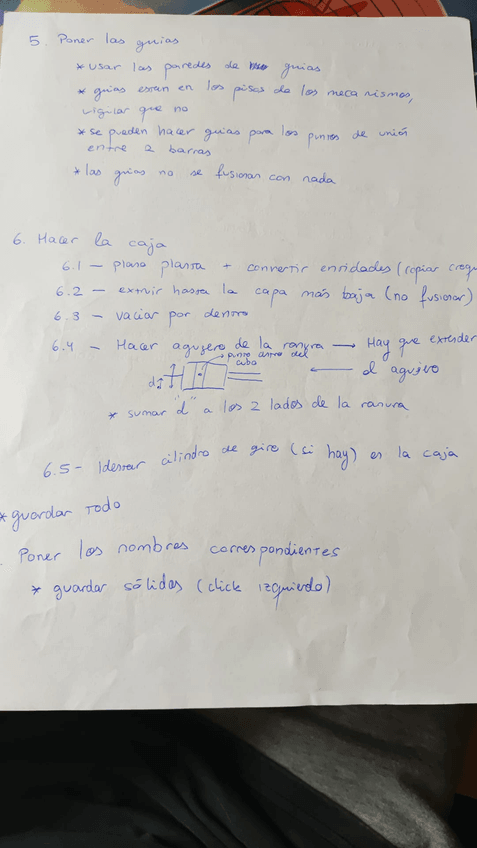 5. Poner las guias
* usar las paredes de guias
* guias estan en los pisos de los mecanismos,
vigilar que no
* se pueden hacer guias para los puntos de unión
entre 2 barras
* las guias no se fusionan con nada
6. Hacer la caja
6.1 — plano planta + convertir entidades (copiar croqu
6.2 — extruir hasta la capa más baja (no fusionar)
6.3 — vaciar por dentro
6.4 — Hacer agugero de la ranura → Hay que extender
punto antro del
cubo
← el agugero
d
* sumar "d" a los 2 lados de la ranura
6.5 - Idestar cilindro de giro (si hay) es la caja
* guardar TODO
Poner los nombres correspondientes
* guardar sólidos (click izquierdo)